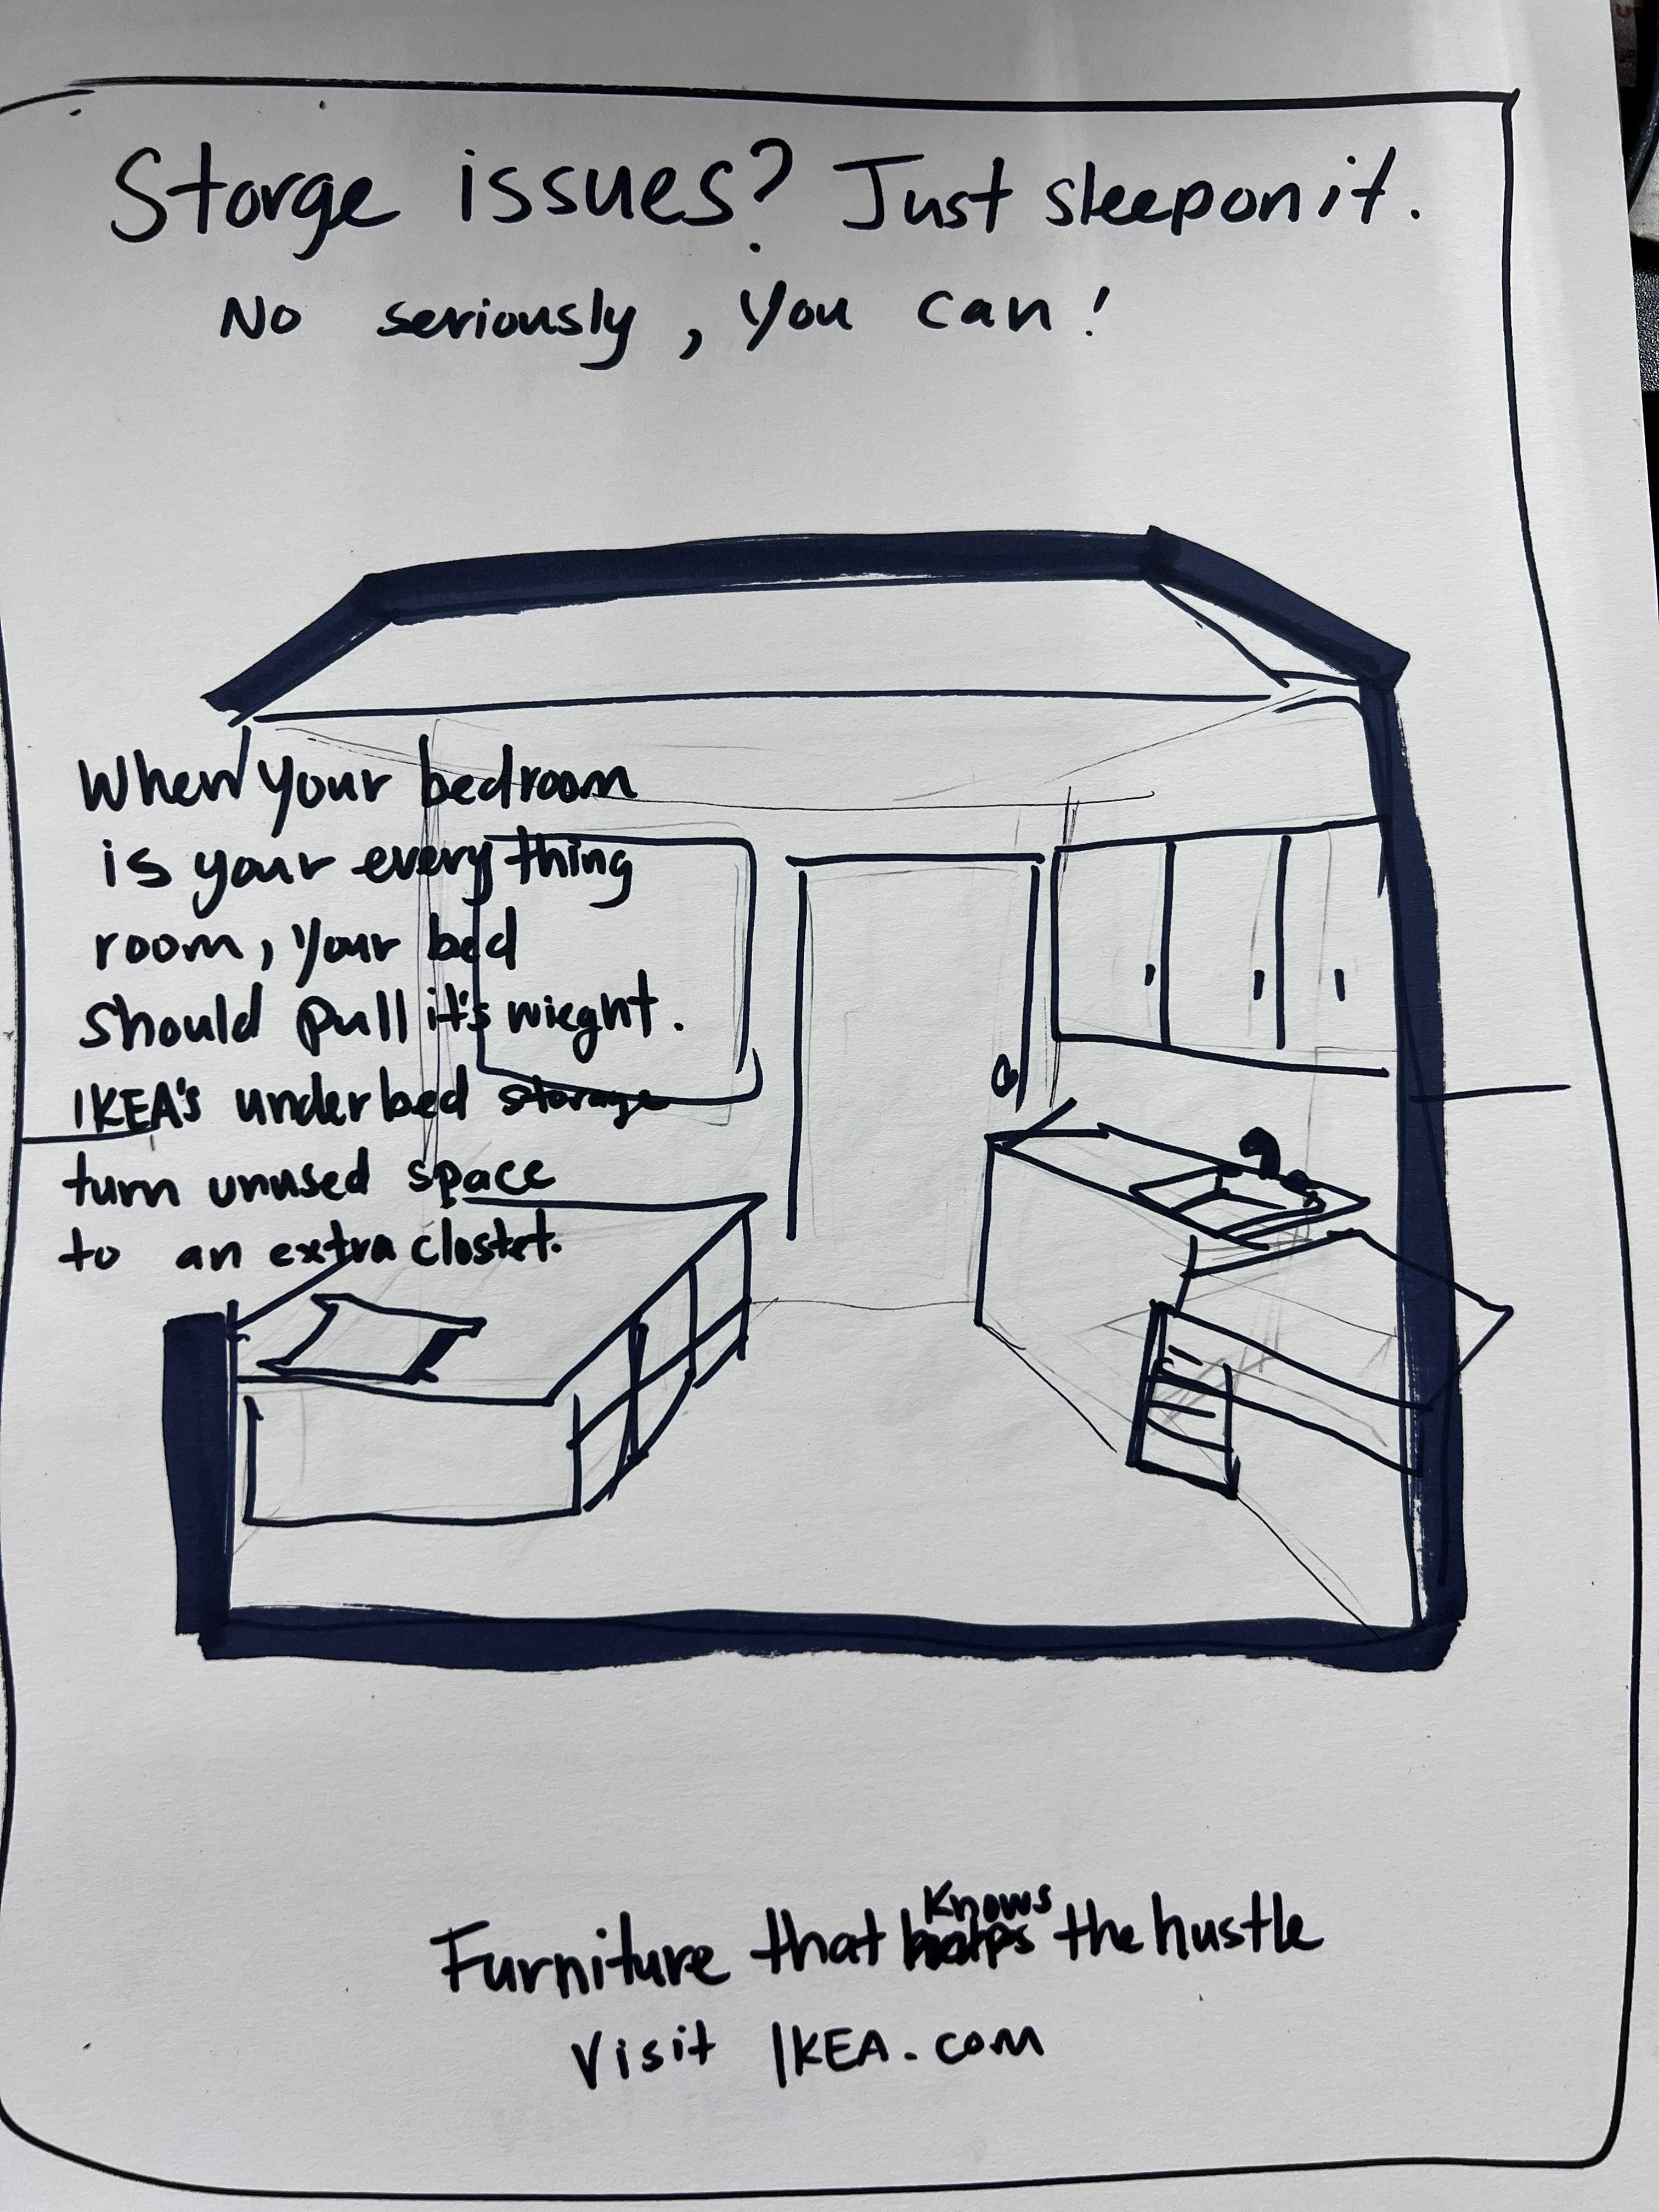 Storge issues? Just sleep on it.
No seriously, you can!
When your bedroom
is your everything
room, your bed
should pull it's wieght.
IKEA's underbed storage
turn unused space
to an extra clostet.
Knows
Furniture that helps the hustle
Visit IKEA.com